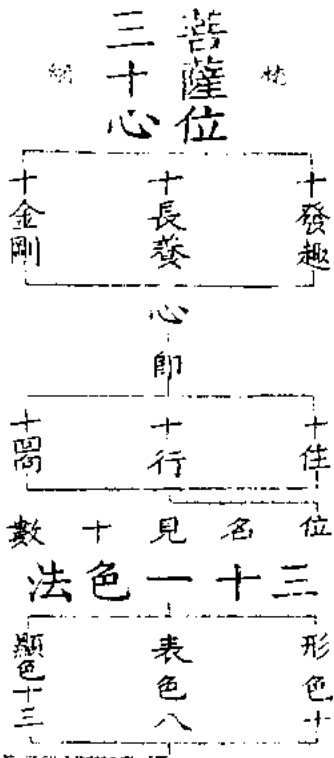 菩薩位
三十心
十發趣
十長養
十金剛
心
即
十住
十行
十
位名見十數
三十一色法
形色十
表色八
顯色十三